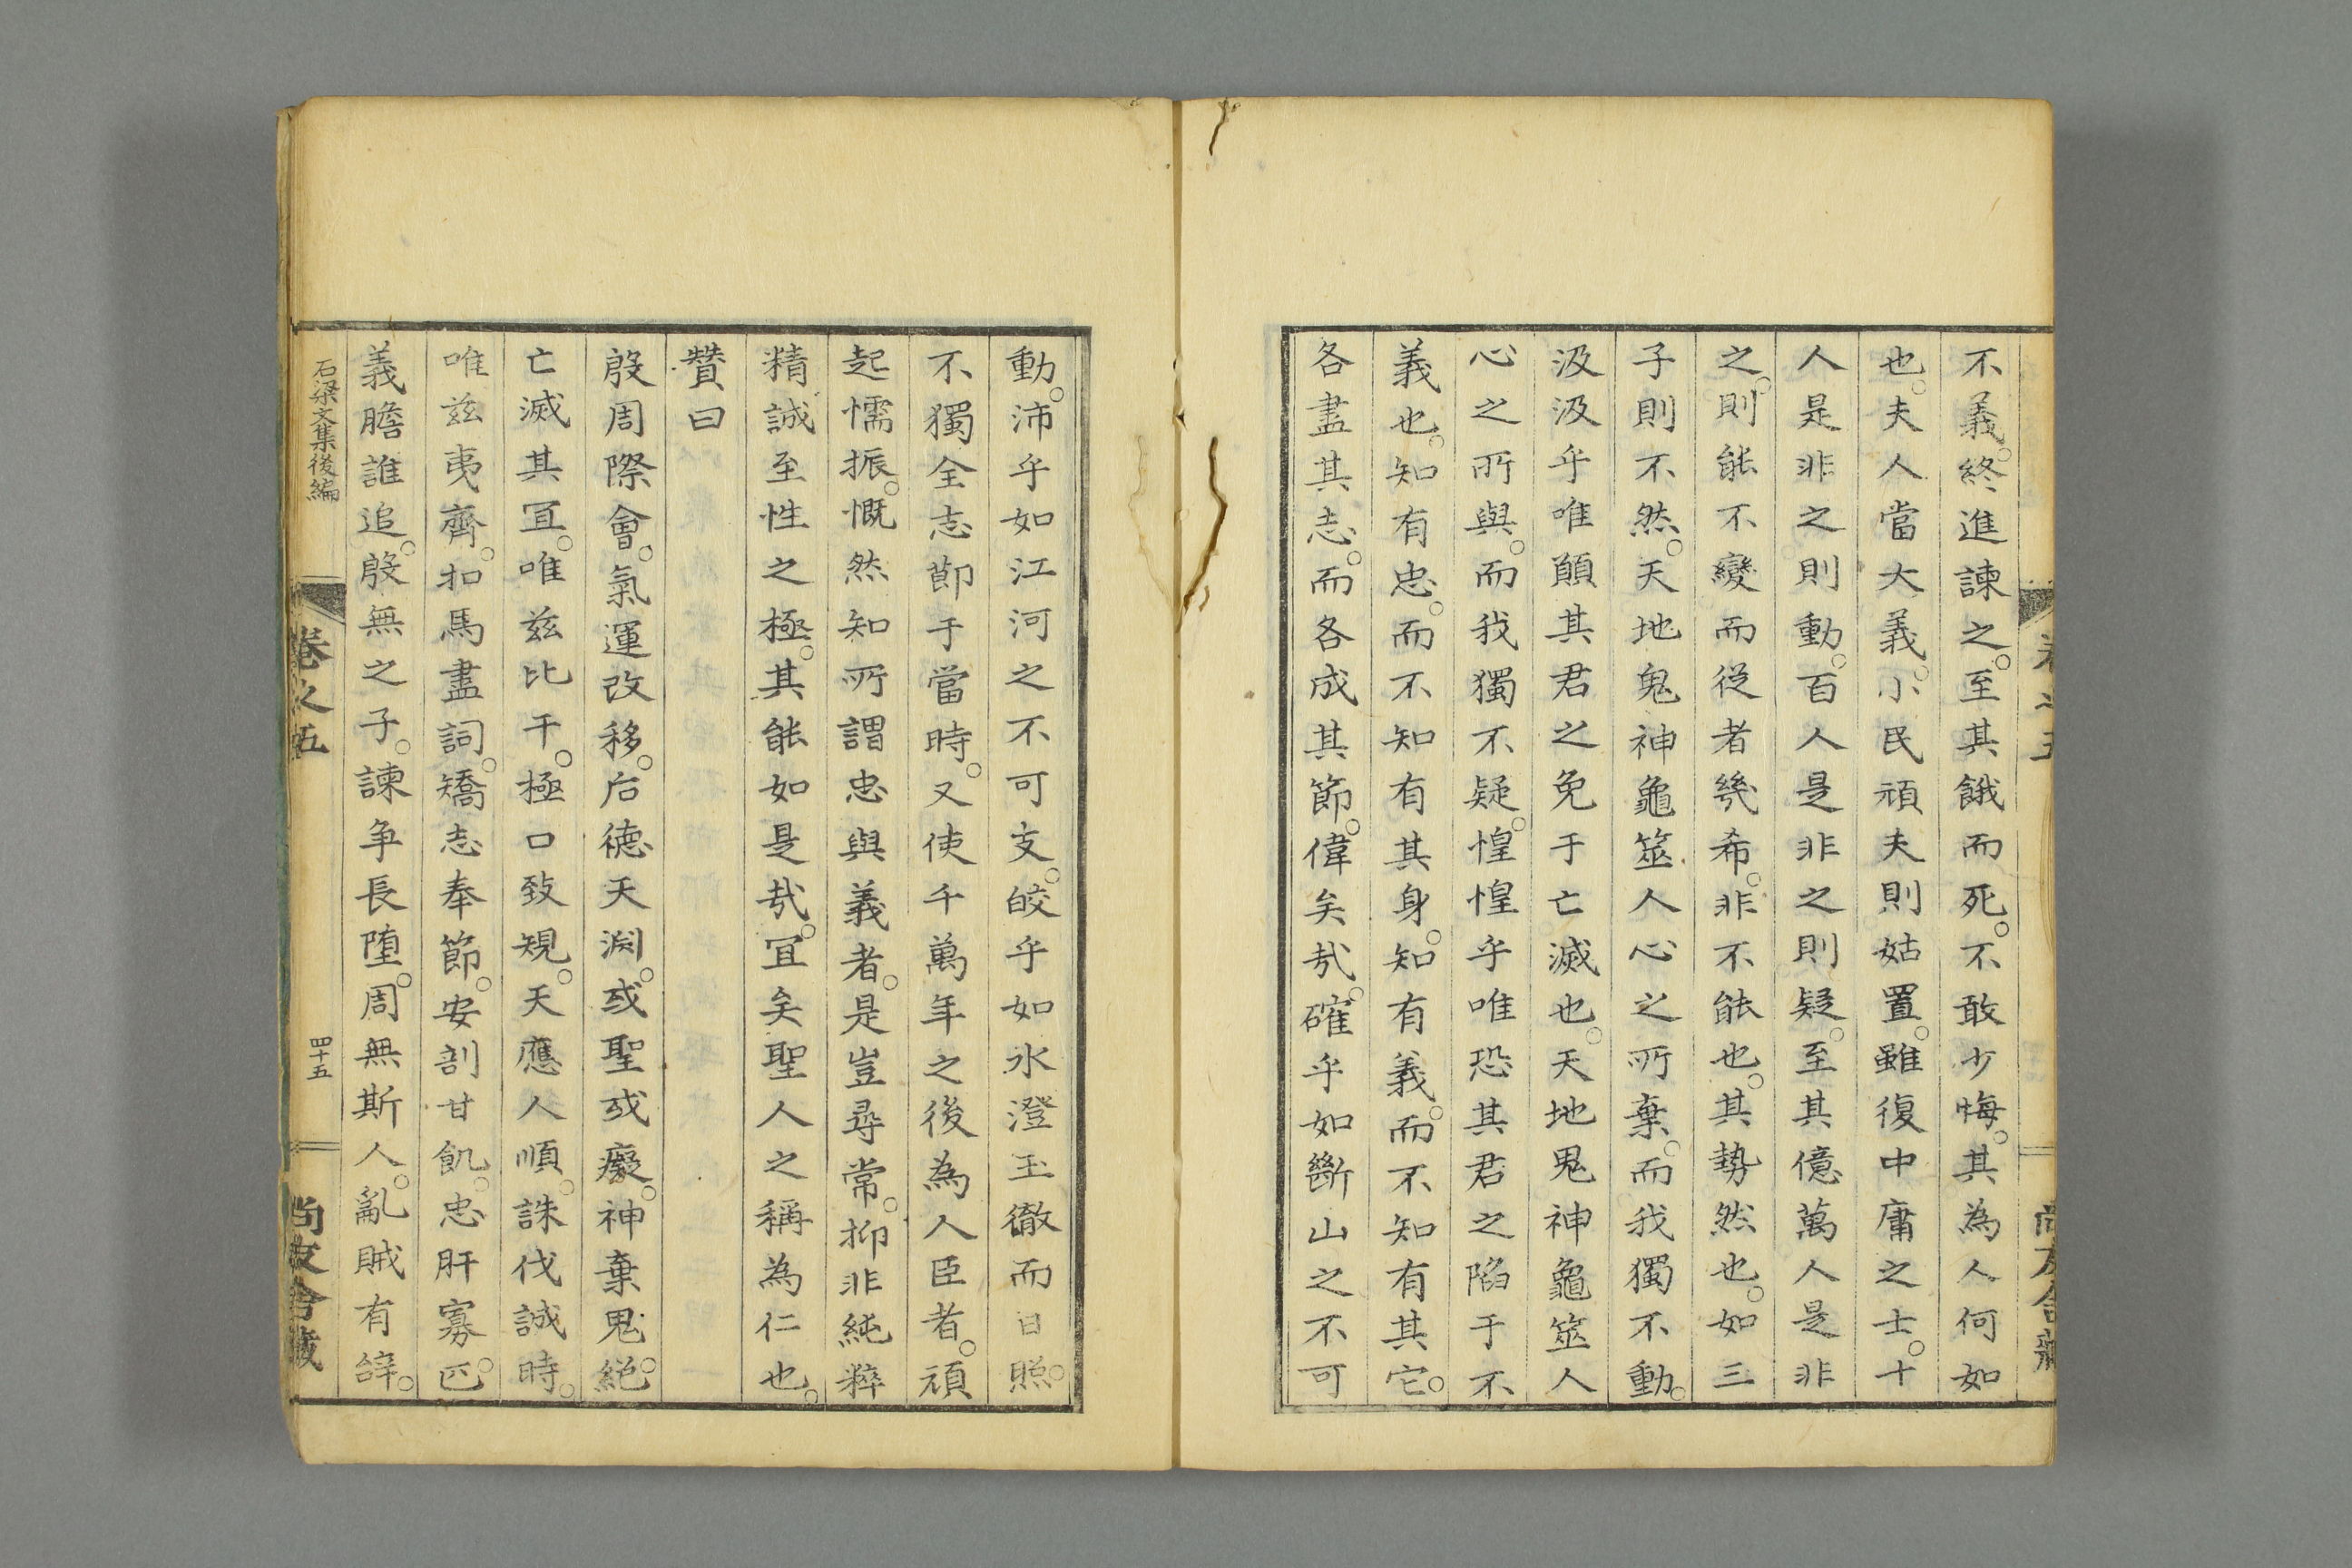 不義。終進諫之。至其餓而死。不敢少悔。其為人何如
也。夫人當大義。小民頑夫則姑置。雖復中庸之士。十
人是非之則動。百人是非之則疑。至其億萬人是非
之。則能不變而從者幾希。非不能也。其勢然也。如三
子則不然。天地鬼神龜筮人心之所棄。而我獨不動。
汲汲乎唯願其君之免于亡滅也。天地鬼神龜筮人
心之所與。而我獨不疑。惶惶乎唯恐其君之陷于不
義也。知有忠。而不知有其身。知有義。而不知有其它。
各盡其志。而各成其節。偉矣哉。確乎如斷山之不可
動。沛乎如江河之不可支。皎乎如氷澄玉徹而日照。
不獨全志節于當時。又使千萬年之後為人臣者。頑
起懦振。慨然知所謂忠與義者。是豈尋常。抑非純粹
精誠至性之極。其能如是哉。冝矣聖人之稱為仁也。
贊曰
殷周際會。氣運改移。后德天淵。或聖或癡。神棄鬼絕。
亡滅其冝。唯茲比干。極口致規。天應人順。誅伐誠時。
唯茲夷齊。扣馬盡詞。矯志奉節。安剖甘飢。忠肝寡匹。
義膽誰追。殷無之子。諫爭長墮。周無斯人。亂賊有辞。
石梁文集後編
卷之五
四十五
尚友舍藏